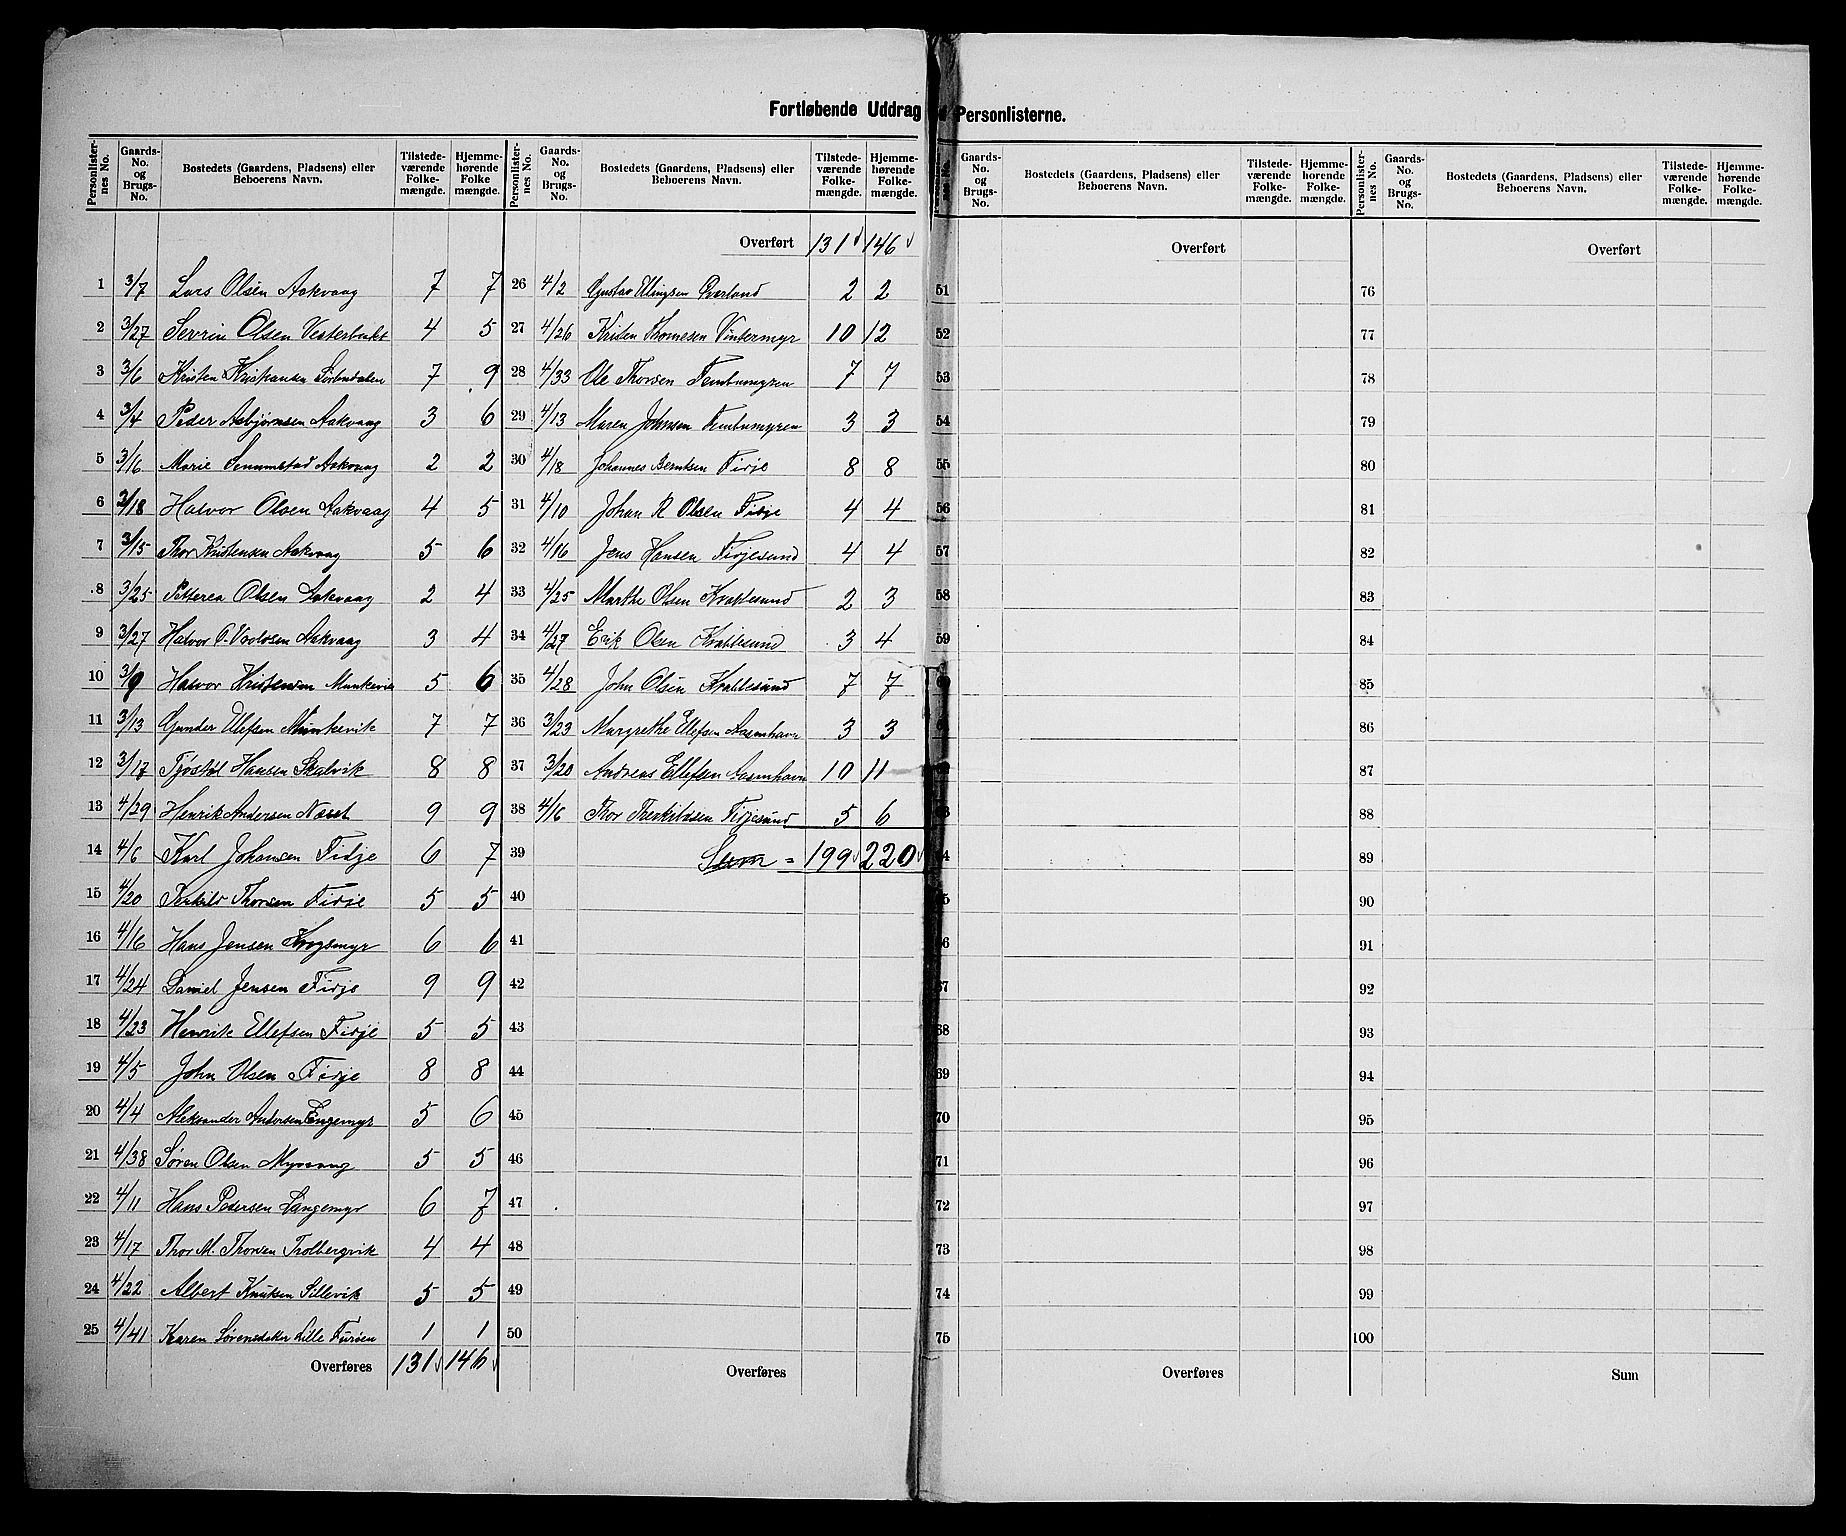 Fortløbende Uddrag Personlisterne.
Personlister-nes No. | Gaards-No. og Brugs-No. | Bostedets (Gaardens, Pladsens) eller Beboerens Navn. | Tilstede-værende Folke-mængde. | Hjemme-hørende Folke mængde.
1 3/7 Lars Olsen Aakvaag 7 7
2 3/27 Sevrin Olsen Vesterbukt 4 5
3 3/6 Kristen Kristiansen 7 9
4 3/4 Peder Asbjørnsen Aakvaag 3 6
5 3/16 Marie Aakvaag 2 2
6 3/18 Halvor Olsen Aakvaag 4 5
7 3/15 Thor Kristensen Aakvaag 5 6
8 3/25 Petterea Olsen Aakvaag 2 4
9 3/27 Halvor Aakvaag 3 4
10 3/9 Halvor Kristensen Munkevik 5 6
11 3/13 Gunder Olefsen Munkevik 7 7
12 3/17 Tjøstøl Hansen Skalvik 8 8
13 4/29 Henrik Andersen Næset 9 9
14 4/6 Karl Johansen Fidje 6 7
15 4/20 Terkild Thorsen Fidje 5 5
16 4/16 Hans Jensen Krogsmyr 6 6
17 4/24 Daniel Jensen Fidje 9 9
18 4/23 Henrik Ellefsen Fidje 5 5
19 4/5 John Olsen Fidje 8 8
20 4/4 Aleksander Andersen Engemyr 5 6
21 4/38 Søren Olsen Myrvang 5 5
22 4/11 Hans Pedersen Langemyr 6 7
23 4/17 Thor M. Thorsen Trolbergvik 4 4
24 4/22 Albert Knutsen Sillevik 5 5
25 4/41 Karen Sørensdatter Lille Furøen 1 1
Overføres 131 146
Personlister-nes No. | Gaards-No. og Brugs-No. | Bostedets (Gaardens, Pladsens) eller Beboerens Navn. | Tilstede-værende Folke-mængde. | Hjemme-hørende Folke-mængde.
Overført 131 146
26 4/2 Gustav Ellingsen Overland 2 2
27 4/26 Kristen Thomesen Vintermyr 10 12
28 4/33 Ole Thorsen Femtumyren 7 7
29 4/13 Maren Johnsen Femtumyren 3 3
30 4/18 Johannes Berntsen Fidje 8 8
31 4/10 Johan R Olsen Fidje 4 4
32 4/16 Jens Hansen Fidjesund 4 4
33 4/25 Marthe Olsen Krabbesund 2 3
34 4/27 Erik Olsen Krabbesund 3 4
35 4/28 John Olsen Krabbesund 7 7
36 3/23 Margrethe Ellefsen Aasmhavn 3 3
37 3/20 Andreas Ellefsen Aasmhavn 10 11
38 4/16 Thor Therkildsen Fidjesund 5 6
39 Sum = 199 220
40
41
42
43
44
45
46
47
48
49
50
Overføres
Gaards-No. og Brugs-No. | Bostedets (Gaardens, Pladsens) eller Beboerens Navn. | Tilstede-værende Folke-mængde. | Hjemme-hørende Folke-mængde.
Overført
51
52
53
54
55
56
57
58
59
67
68
69
70
71
72
73
74
75
Overføres
Personlister-nes No. | Gaards-No. og Brugs-No. | Bostedets (Gaardens, Pladsens) eller Beboerens Navn. | Tilstede-værende Folke-mængde. | Hjemme-hørende Folke-mængde.
Overført
76
77
78
79
80
81
82
83
84
85
86
87
88
89
90
91
92
93
94
95
96
97
98
99
100
Sum